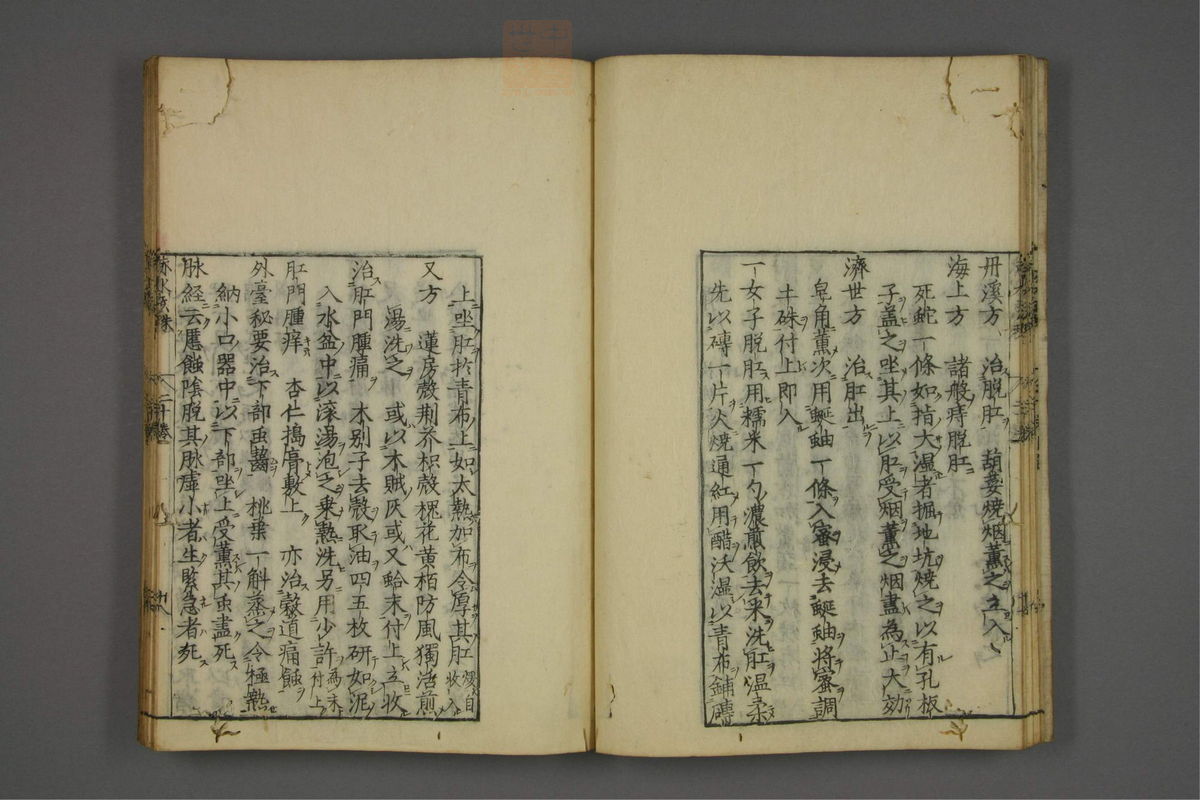 丹溪方　治脱肛　葫荽焼烟薫之立入
海上方　諸般痔脱肛
死蛇一條如指大湿者掘地坑焼之以有孔板
子盖之坐其上以肛受烟薫之烟盡為止大効
濟世方　治肛出
皂角薫次用蜒蚰一條入蜜浸去蜒蚰将蜜調
硃付上即入
一女子脱肛用糯米一勺濃煎飲去米洗肛温柔
先以磚一片火焼通紅用醋沃湿以青布鋪磚
上坐肛扵青布上如太熱加布令厚其肛
自収入
又方　蓮房殻荆芥枳殻槐花黄栢防風獨活煎
湯洗之　或以木賊灰或又蛤末付上立収
治肛門腫痛　木别子去殻取油四五枚研如泥
入水盆中以滚湯泡之乗熱洗另用少許為末付上
肛門腫痒　杏仁搗膏敷上　亦治穀道痛蝕
外臺秘要治下部虫䘌　桃葉一斛蒸之令極熱
納小口器中以下部坐上受薫其虫盡死
脉経云䘌蝕陰脱其脉虚小者生緊急者死